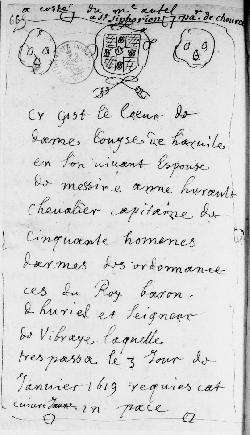 a costé du m.e autel
a St Siphorien pa.r de chevern
Cy gist le Coeur de
dame Louyse de haruile
en son vivant Espouse
de messire anne hurault
chevalier capitaine de
cinquante hommes
darmes des ordonnan
ces du Roy baron
d huriel et Seigneur
de Vibraye laquelle
trespassa le 3 Jour de
Januier 1619 requiescat
in pace
cuiure Jaune